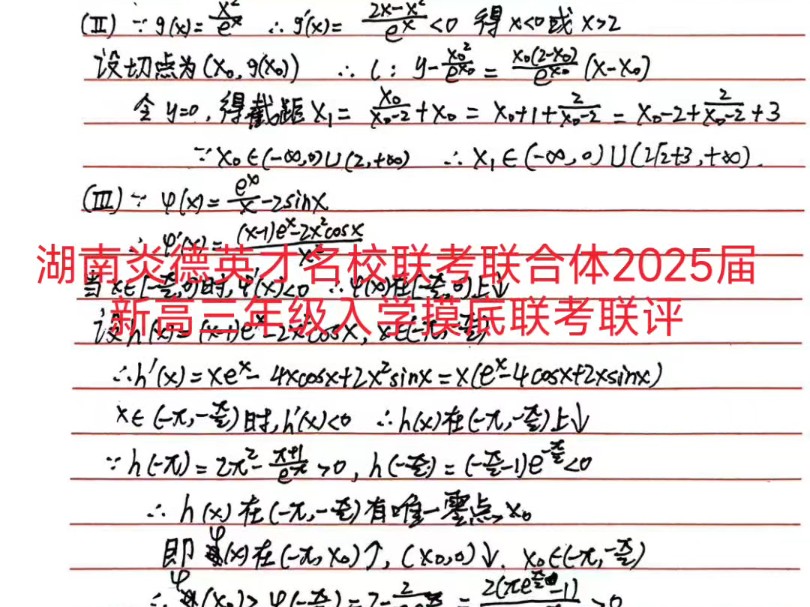 (Ⅱ) ∵ g(x)= x²/eˣ ∴ g'(x)= (2x-x²)/eˣ <0 得 x<0 或 x>2
设切点为 (x₀, g(x₀)) ∴ l: y - x₀²/e^x₀ = x₀(2-x₀)/e^x₀ (x-x₀)
令 y=0, 得截距 x₁ = x₀/(x₀-2) + x₀ = x₀+1+ 2/(x₀-2) = x₀-2+ 2/(x₀-2) +3
∵ x₀∈(-∞,0)∪(2,+∞) ∴ x₁∈(-∞,0)∪(2√2+3,+∞).
(Ⅲ) ∵ φ(x)= eˣ/x -2sinx
∴ φ'(x)= ((x-1)eˣ-2x²cosx)/x²
湖南炎德英才名校联考联合体2025届
当 x∈[-π/2,0)时, φ'(x)<0 ∴ φ(x)在[-π/2,0)上↓
新高三年级入学摸底联考联评
设 h(x)= (x-1)eˣ-2x²cosx, x∈(-π,-π/2)
∴ h'(x)= xeˣ- 4xcosx+2x²sinx = x(eˣ-4cosx+2xsinx)
x∈(-π,-π/2)时, h'(x)<0 ∴ h(x)在(-π,-π/2)上↓
∵ h(-π)= 2π²- (π+1)/e^π >0, h(-π/2)=(-π/2-1)e^(-π/2)<0
∴ h(x)在(-π,-π/2)有唯一零点x₀
即 φ(x)在(-π,x₀)↑, (x₀,0)↓. x₀∈(-π,-π/2)